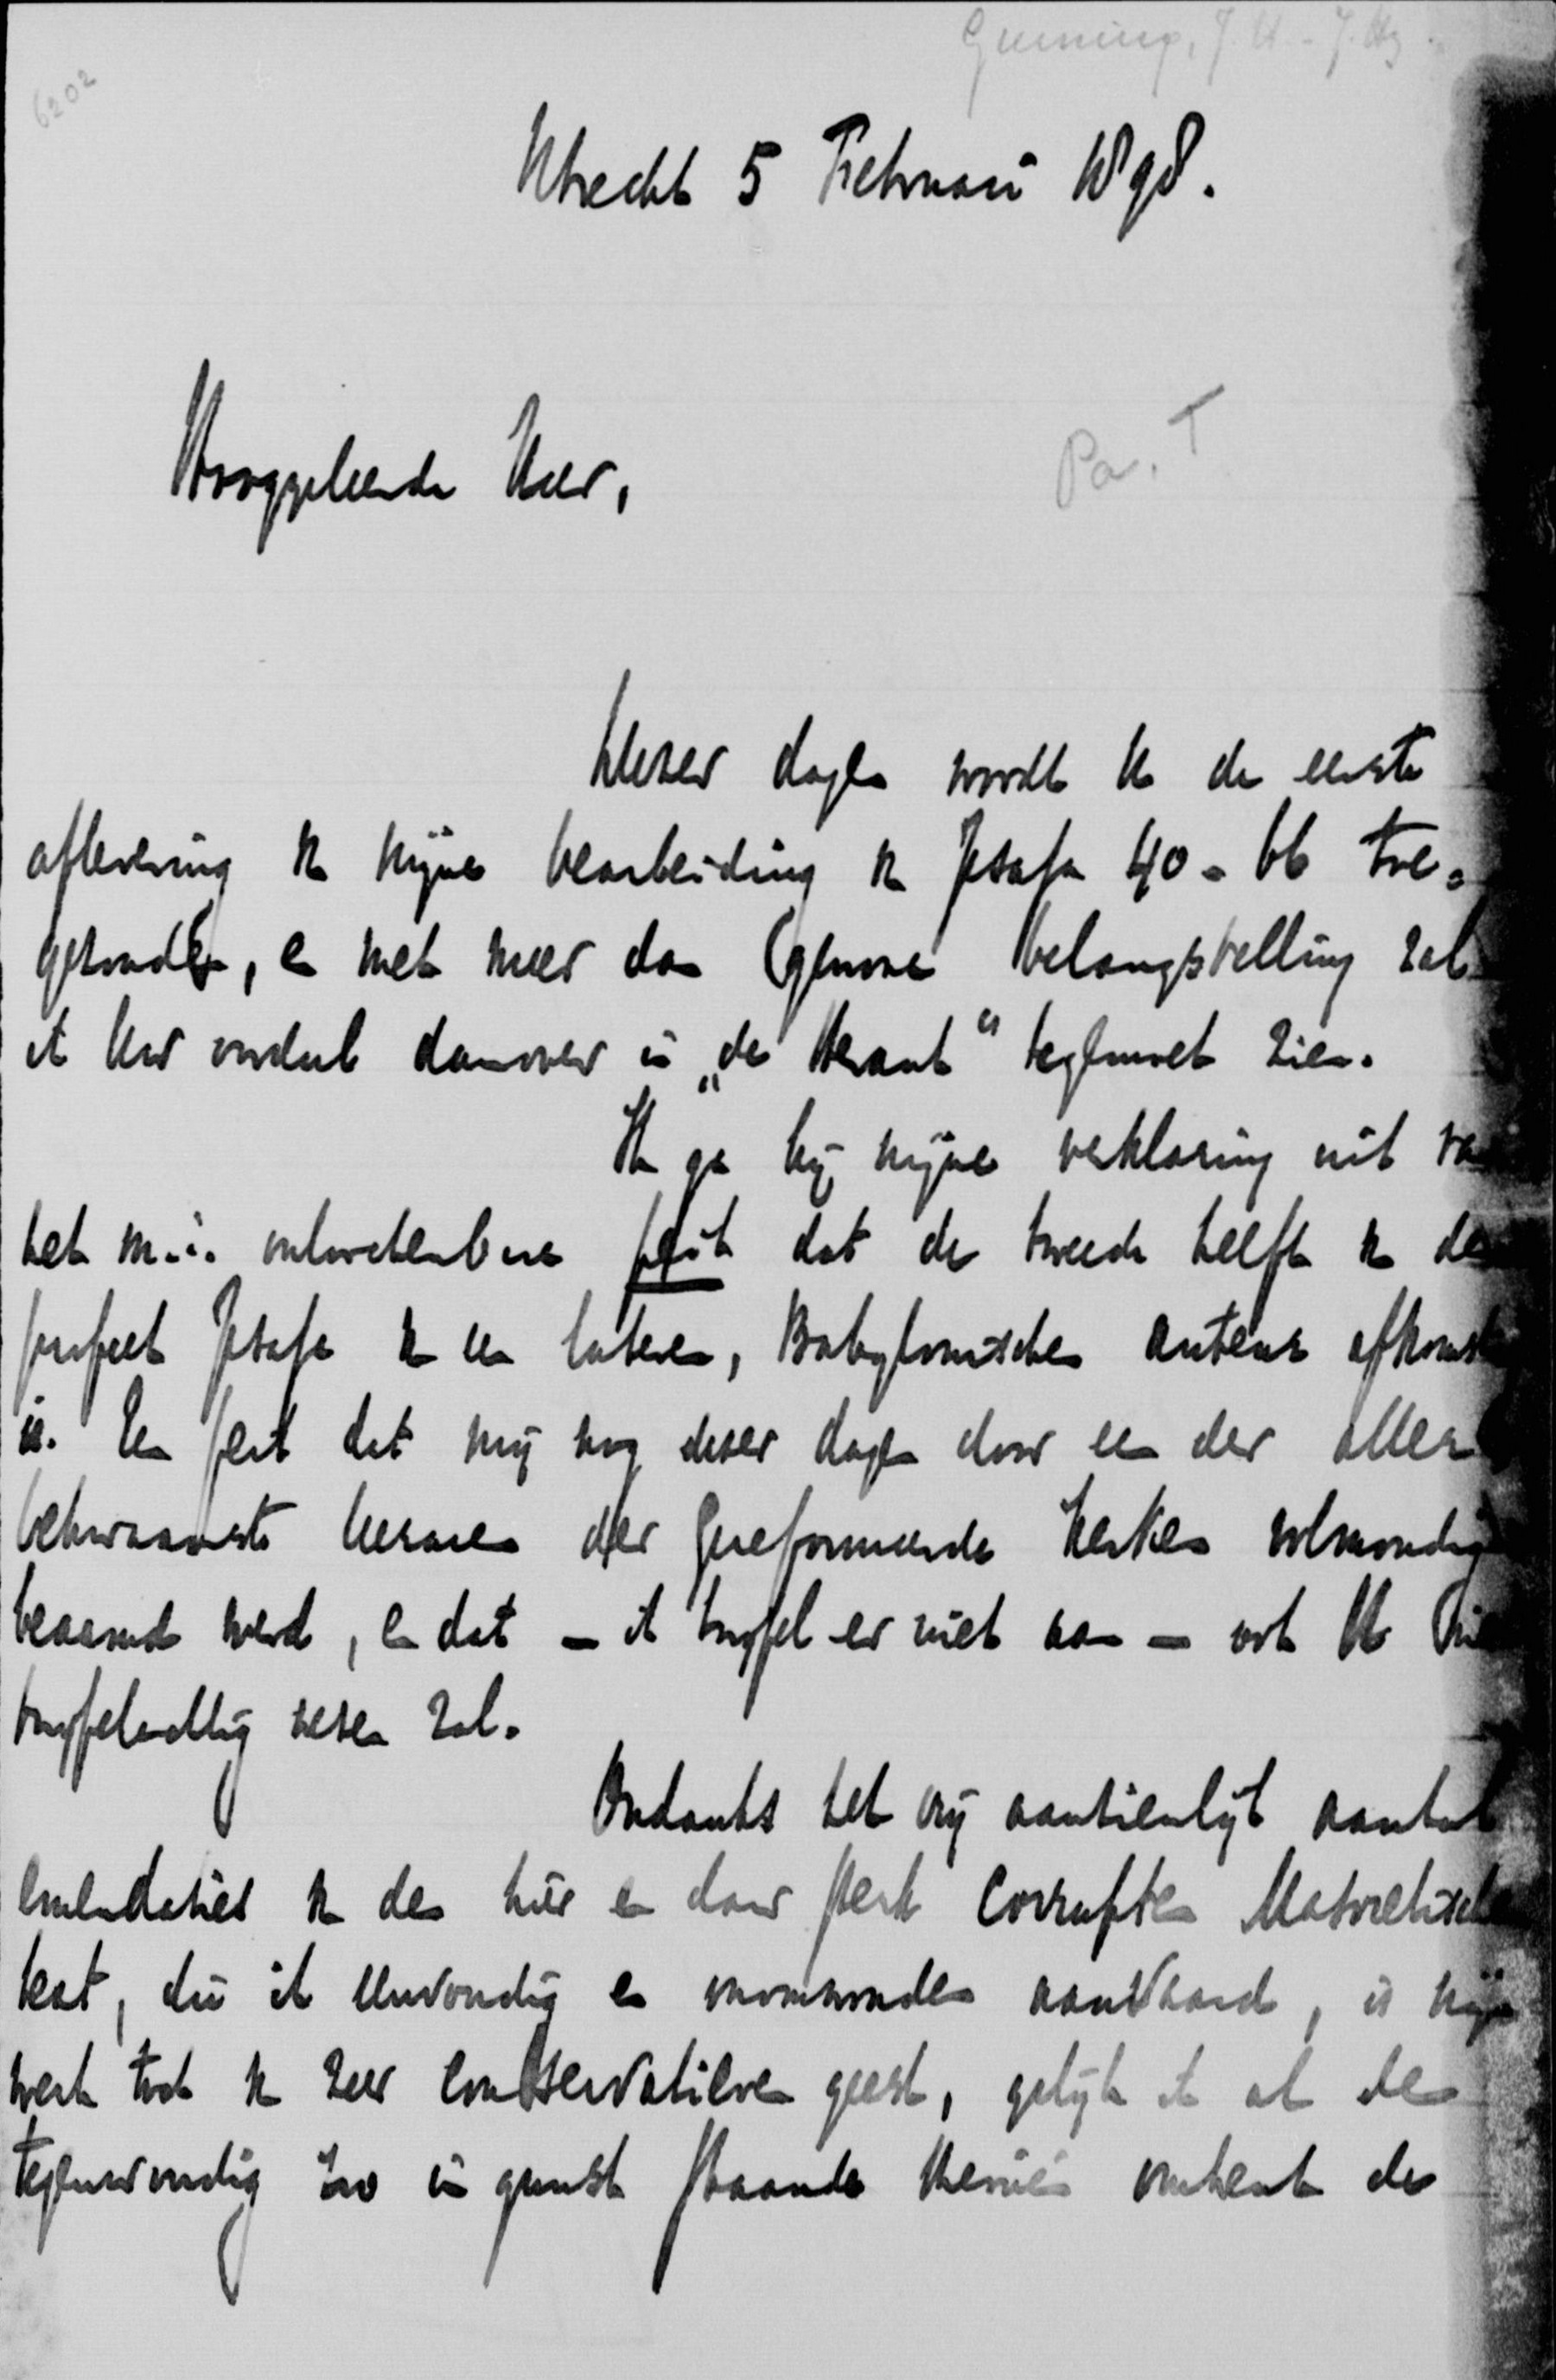 Gunning, J.H. - J.Hz.
6202
Utrecht 5 Februari 1898.
Hooggeleerde Heer,
Pa. T
Dezer dagen wordt U de eerste
aflevering v. mijne bearbeiding v. Jesaja 40-66 toe-
gezonden, en met meer dan gewone belangstelling zal
ik Uw oordeel daarover in „de Heraut" tegemoet zien.
Ik ga bij mijne verklaring uit va
het m.i. onloochenbare feit dat de tweede helft v. de
profeet Jesaja v. een lateren, Babylonischen auteur afkomst
is. Een feit dat mij nog dezer dagen door een der aller
bekwaamste leeraren der Gereformeerde Kerken volmondig
beaamd werd, en dat - ik twijfel er niet aan - ook U
twijfelachtig wezen zal.
Ondanks het vrij aanzienlijk aantal
emendaties v. den hier en daar sterk corrupten Masoretische
tekst, die ik eenvoudig en onomwonden aanvaard, is mijn
werk toch v. zeer conservatieven geest, gelijk ik al de
tegenwoordig zoo in gunst staande theorieën omtrent de